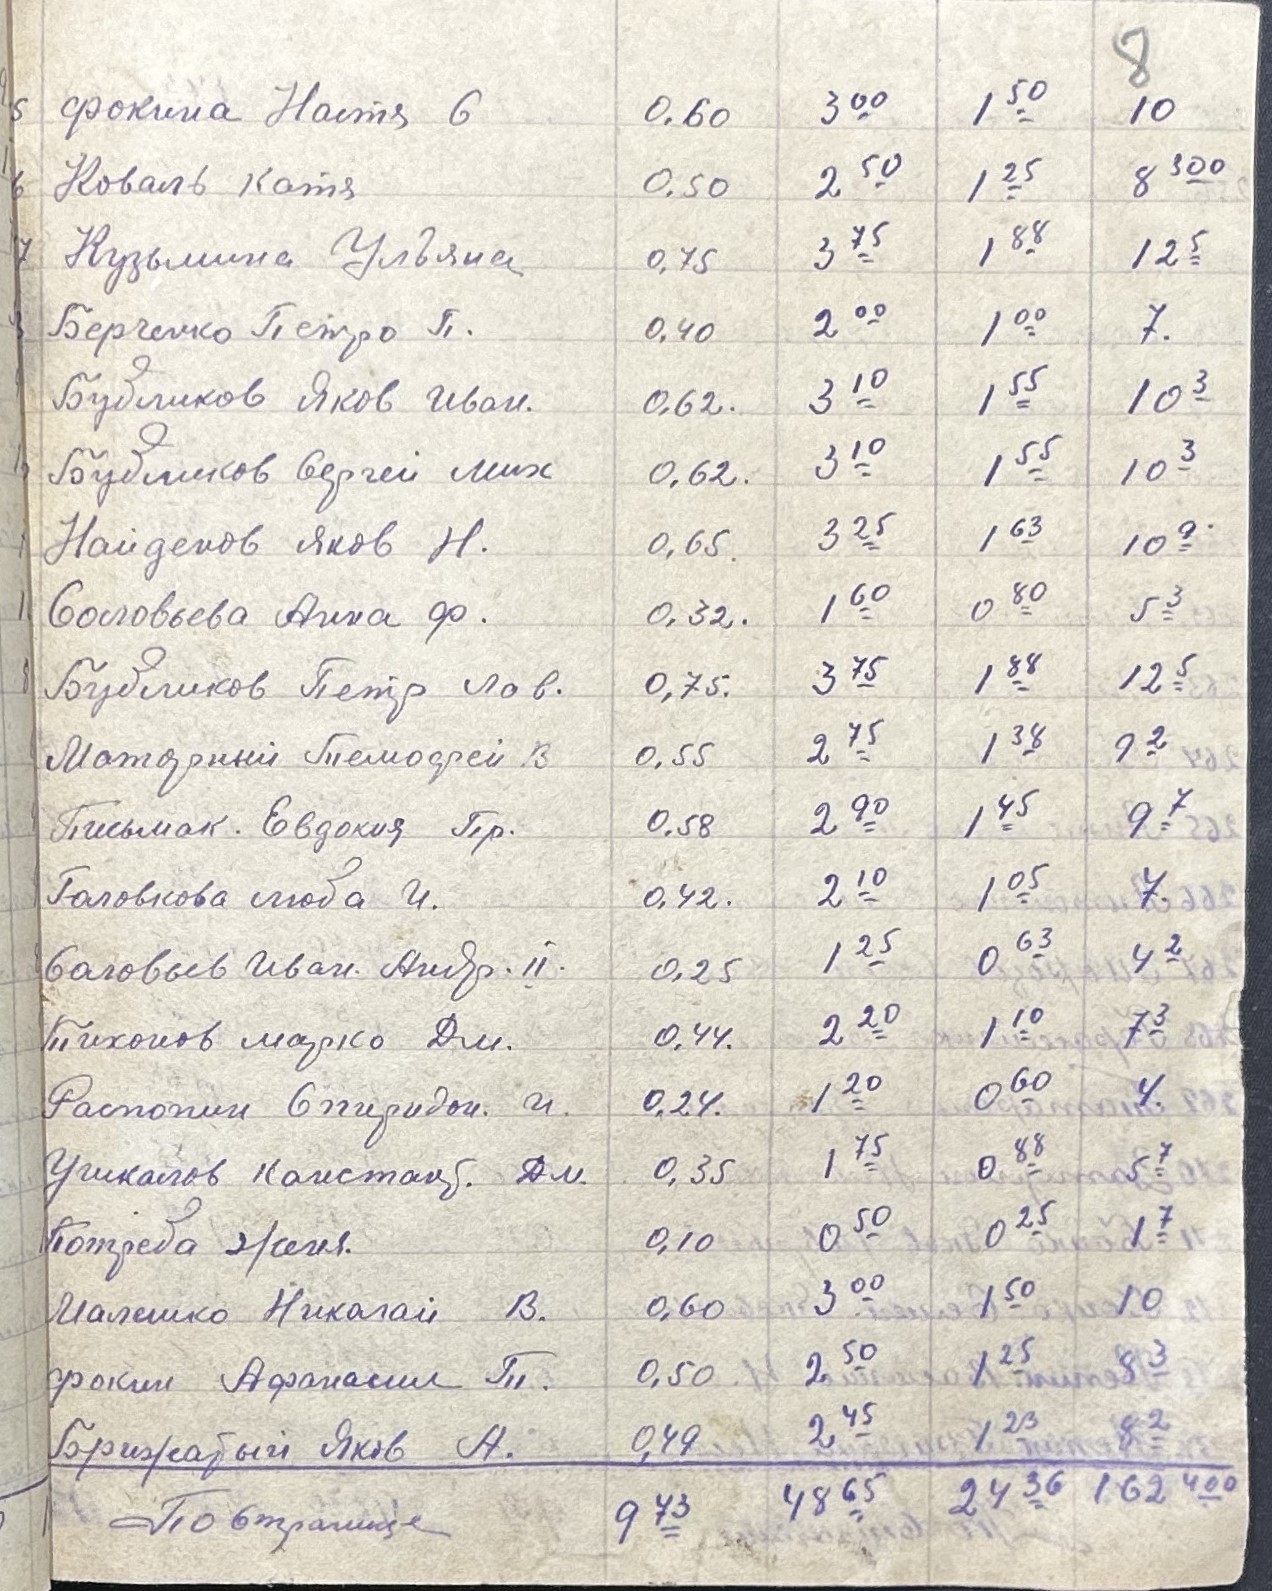 8
5 Фокина Настя С 0.60 3 00 1 50 10
6 Коваль Катя 0.50 2 50 1 25 8 300
7 Кузьмина Ульяна 0,75 3 75 1 88 12 5
Берченко Петро П. 0,40 2 00 1 00 7.
Бубликов Яков Иван. 0,62. 3 10 1 55 10 3
Бубликов Сергей Мих 0,62. 3 10 1 55 10 3
Найденов Яков Н. 0,65. 3 25 1 63 10 9
Соловьева Анна Ф. 0,32. 1 60 0 80 5 3
Бубликов Петр Лав. 0,75. 3 75 1 88 12 5
Маторный Темофей В 0,55 2 75 1 38 9 2
Письмак. Евдокия Пр. 0.58 2 90 1 45 9 7
Головкова Люба И. 0,42. 2 10 1 05 7.
Саловьев Иван. Андр. II. 0,25 1 25 0 63 4 2
Тихонов Марко Дм. 0,44. 2 20 1 10 7 3
Распопин Спиридон. И. 0,24. 1 20 0 60 4.
Учкалов Констант. Дм. 0,35 1 75 0 88 5 7
Потреба Женя. 0,10 0 50 0 25 1 7
Малешко Николай В. 0,60 3 00 1 50 10
Фокин Афанасии П. 0,50. 2 50 1 25 8 3
Брижатый Яков А. 0,49 2 45 1 23 8 2
По странице 9 73 48 65 24 36 162 400